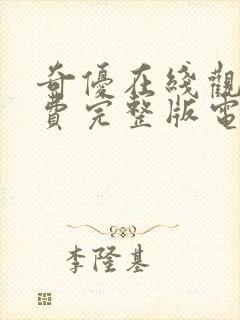 奇優在綫觀
費完整版電
李隆基